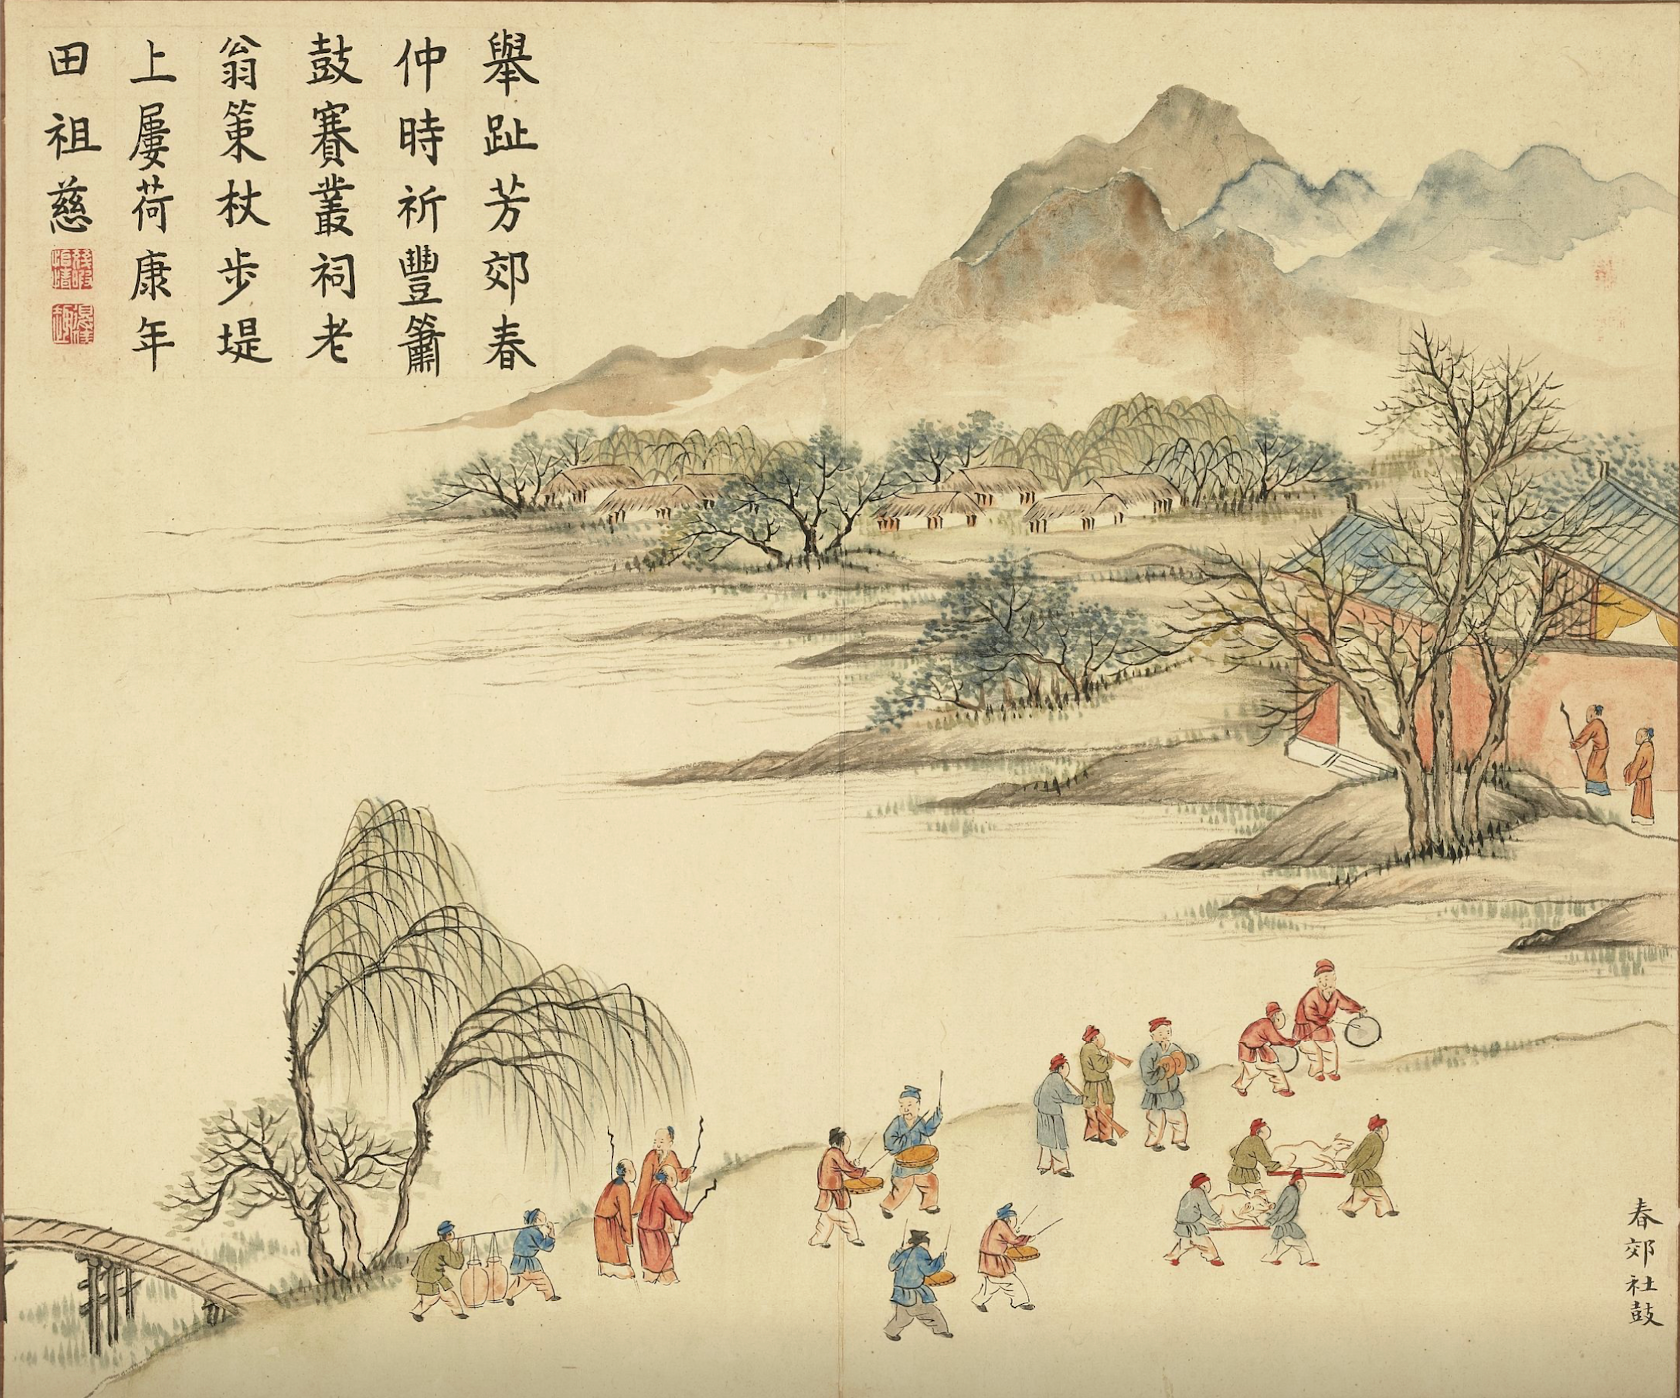 舉趾芳郊春
仲時祈豐簫
鼓賽叢祠老
翁策杖步堤
上屢荷康年
田祖慈
春郊社鼓